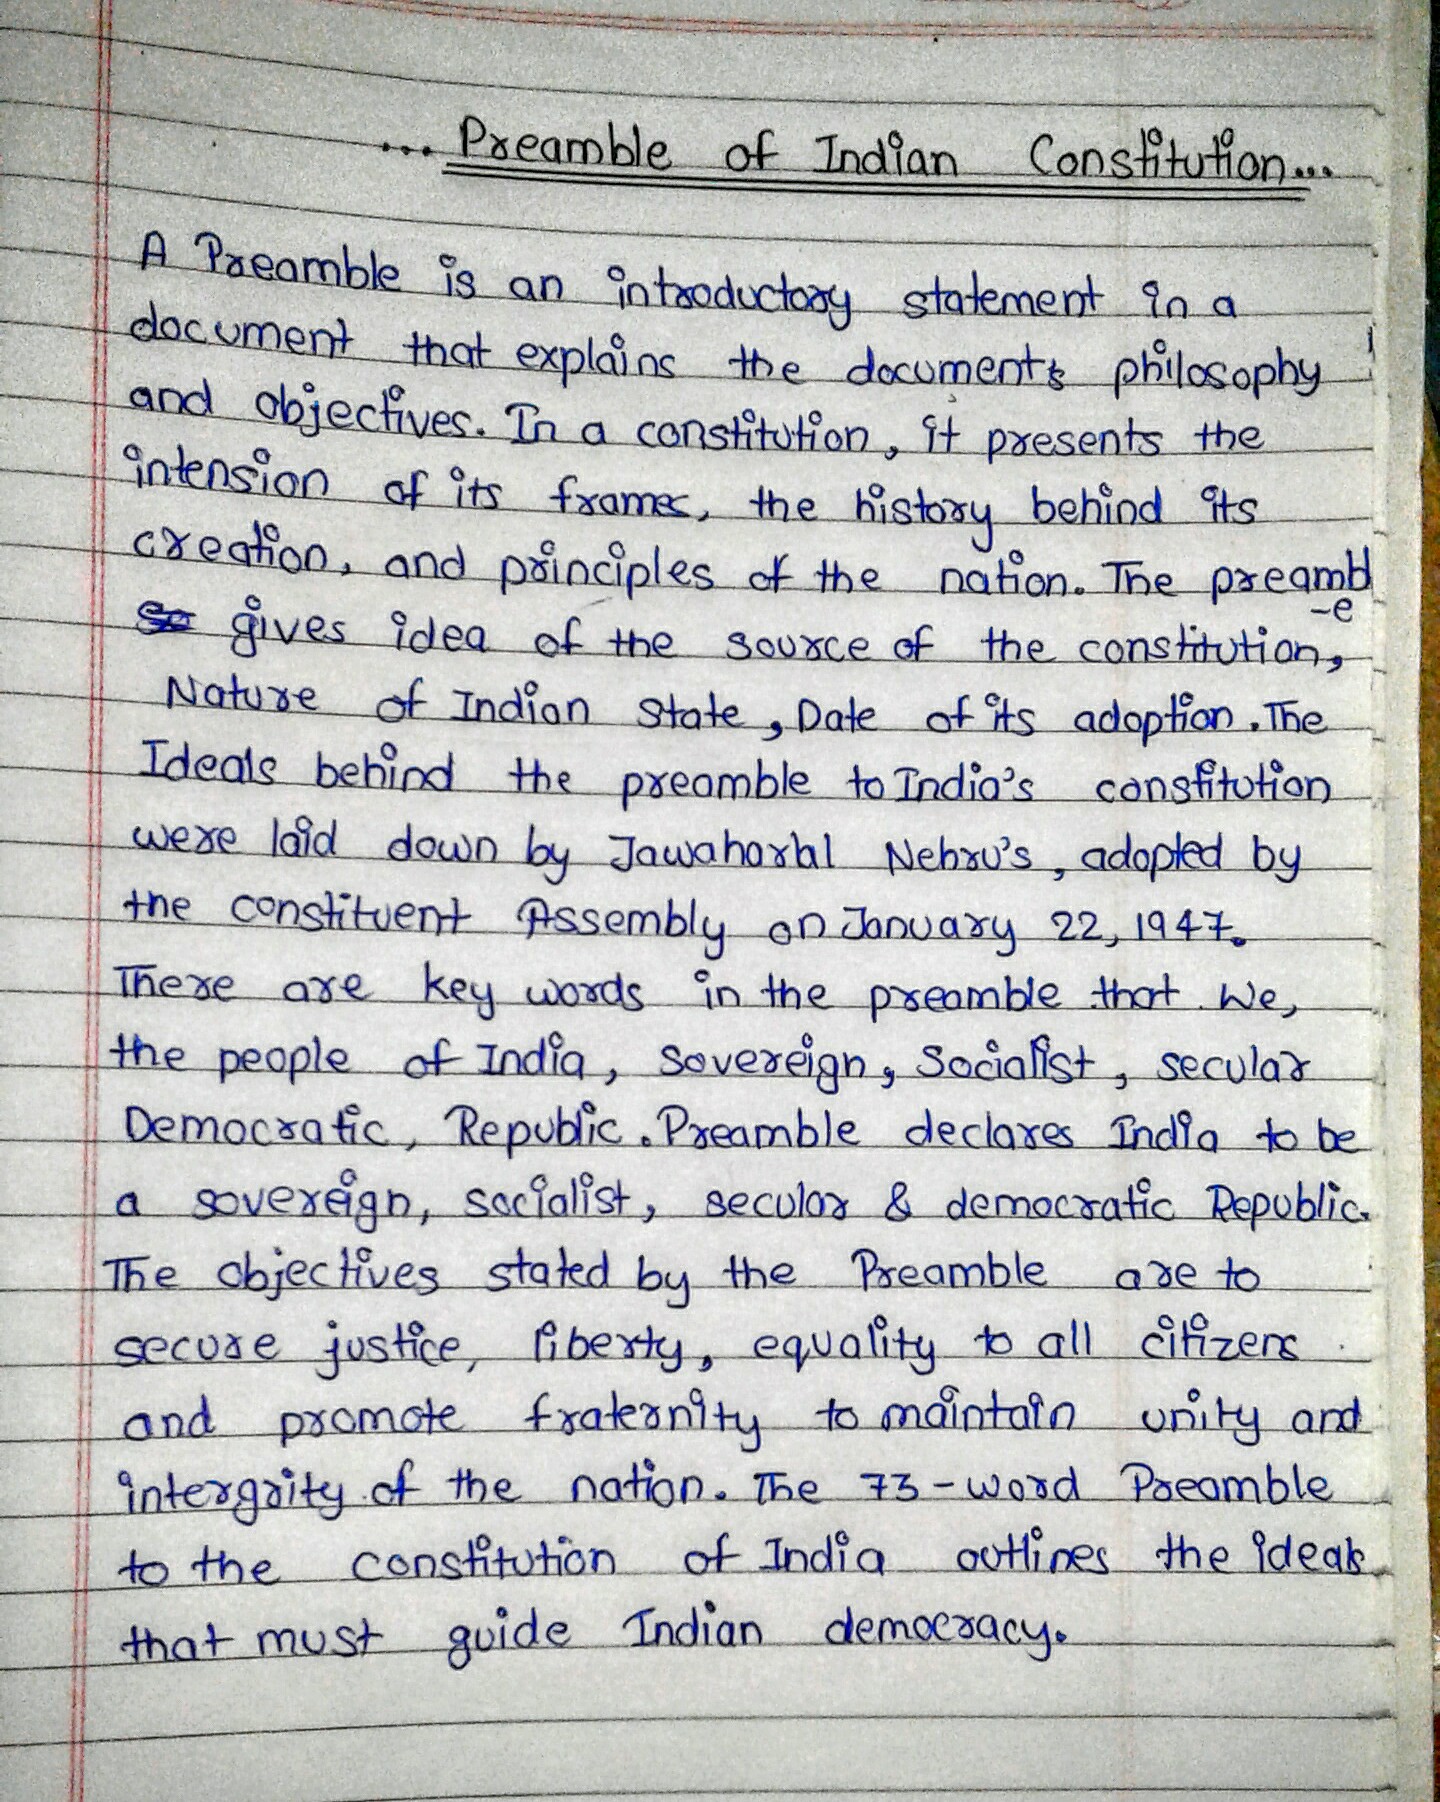 ... Preamble of Indian Constitution...
A Preamble is an introductory statement in a
document that explains the documents philosophy
and objectives. In a constitution, it presents the
intension of its frames, the history behind its
creation, and principles of the nation. The preambl
-e
gives idea of the source of the constitution,
Nature of Indian State, Date of its adoption. The
Ideals behind the preamble to India's constitution
were laid down by Jawaharlal Nehru's, adopted by
the constituent Assembly on January 22, 1947.
There are key words in the preamble that We,
the people of India, Sovereign, Socialist, secular
Democratic, Republic. Preamble declares India to be
a sovereign, socialist, secular & democratic Republic.
The objectives stated by the Preamble are to
secure justice, liberty, equality to all citizens
and promote fraternity to maintain unity and
intergrity of the nation. The 73-word Preamble
to the constitution of India outlines the ideals
that must guide Indian democracy.